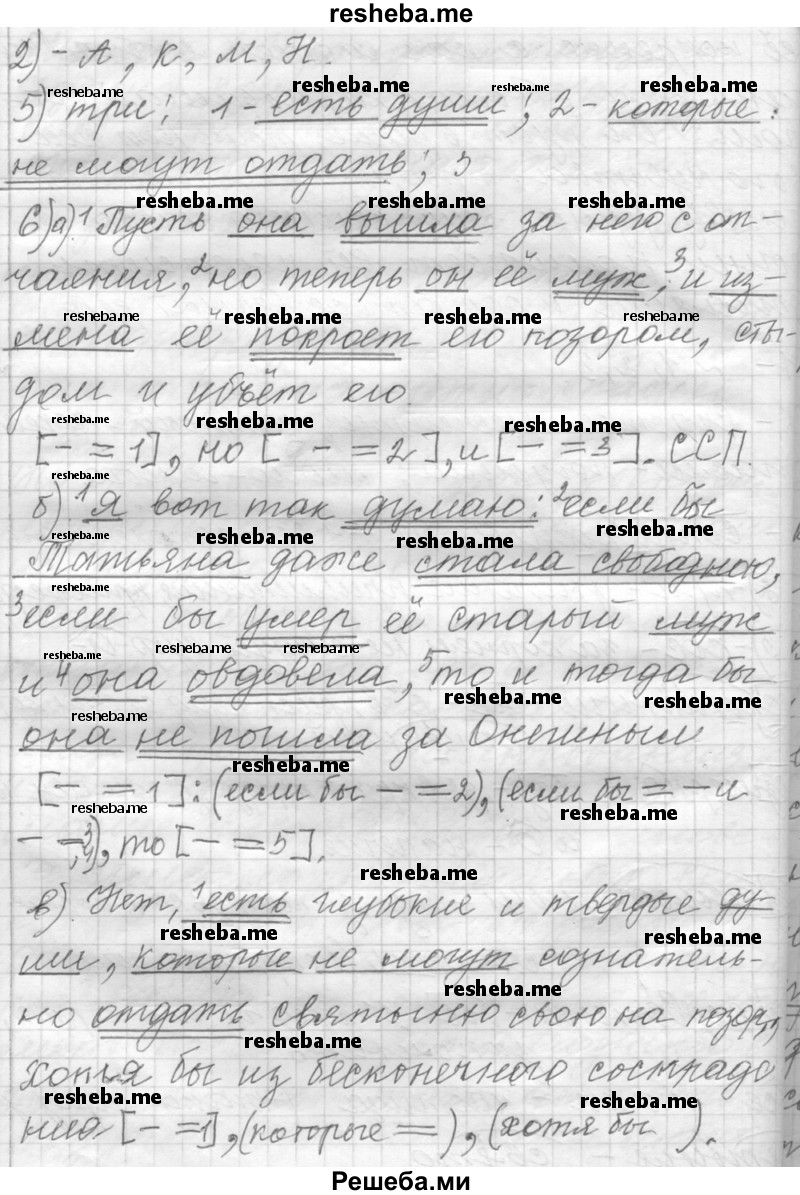 resheba.me
2) – А, К, М, Н.
resheba.me resheba.me resheba.me resheba.me
5) три; 1 - есть души; 2 - которые
не могут отдать; 3
resheba.me resheba.me resheba.me
6) а) ¹Пусть она вышла за него с от-
чаяния, ²но теперь он её муж, ³и из-
resheba.me resheba.me resheba.me resheba.me
мена её покроет его позором, сты-
дом и убьёт его.
resheba.me resheba.me resheba.me
[– = 1], но [ – = 2], и [– = 3]. ССП.
resheba.me
б) ¹Я вот так думаю: ²если бы
resheba.me resheba.me resheba.me resheba.me
Татьяна даже стала свободною,
resheba.me
³если бы умер её старый муж
resheba.me resheba.me resheba.me
и ⁴она овдовела, ⁵то и тогда бы
resheba.me resheba.me resheba.me
она не пошла за Онегиным
resheba.me
[– = 1]: (если бы – = 2), (если бы = – и
resheba.me resheba.me
– =, 3,4), то [– = 5].
resheba.me
в) Нет, ¹есть глубокие и твердые ду-
resheba.me resheba.me
ши, которые не могут сознатель-
resheba.me
но отдать святыню свою на позор,
resheba.me
хотя бы из бесконечного сострада
resheba.me resheba.me
ния [– = 1], (которые =), (хотя бы ).
Решеба.ми